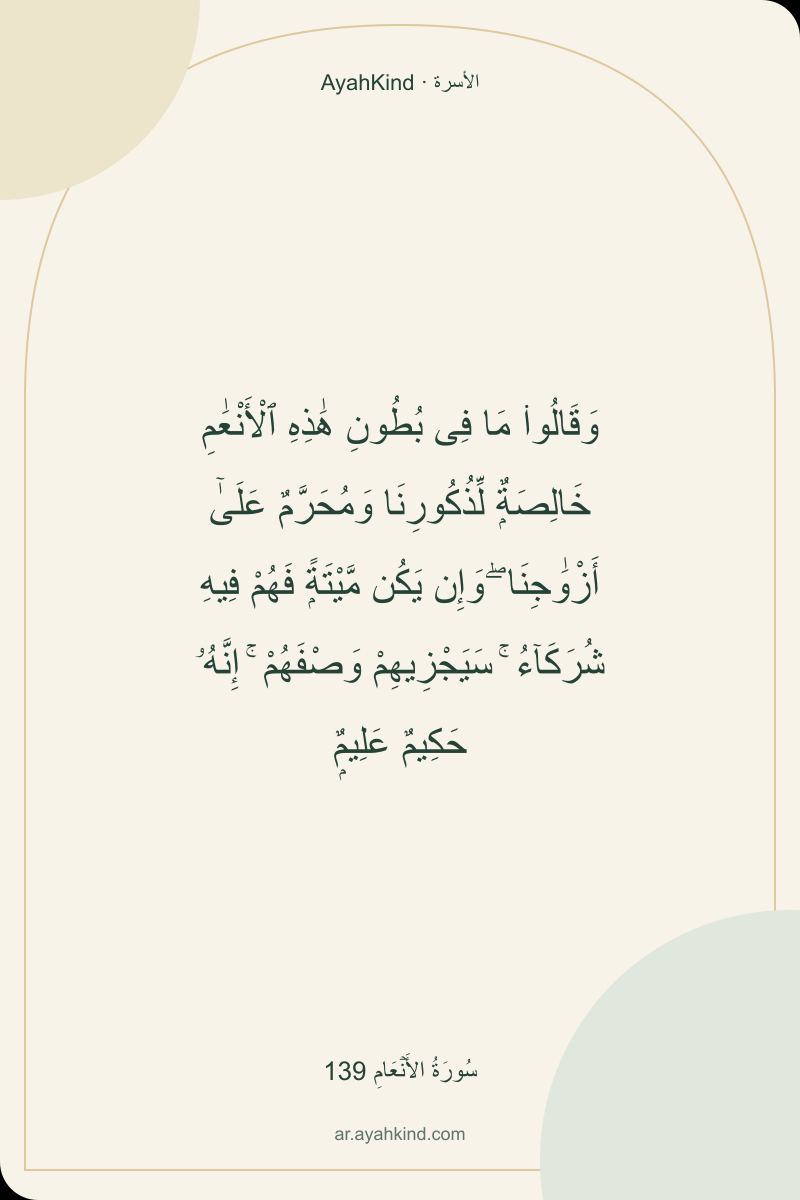 الأسرة · AyahKind
وَقَالُوا۟ مَا فِى بُطُونِ هَٰذِهِ ٱلْأَنْعَٰمِ
خَالِصَةٌۭ لِّذُكُورِنَا وَمُحَرَّمٌ عَلَىٰٓ
أَزْوَٰجِنَا ۖ وَإِن يَكُن مَّيْتَةًۭ فَهُمْ فِيهِ
شُرَكَآءُ ۚ سَيَجْزِيهِمْ وَصْفَهُمْ ۚ إِنَّهُۥ
حَكِيمٌ عَلِيمٌۭ
سُورَةُ الأَنۡعَامِ 139
ar.ayahkind.com